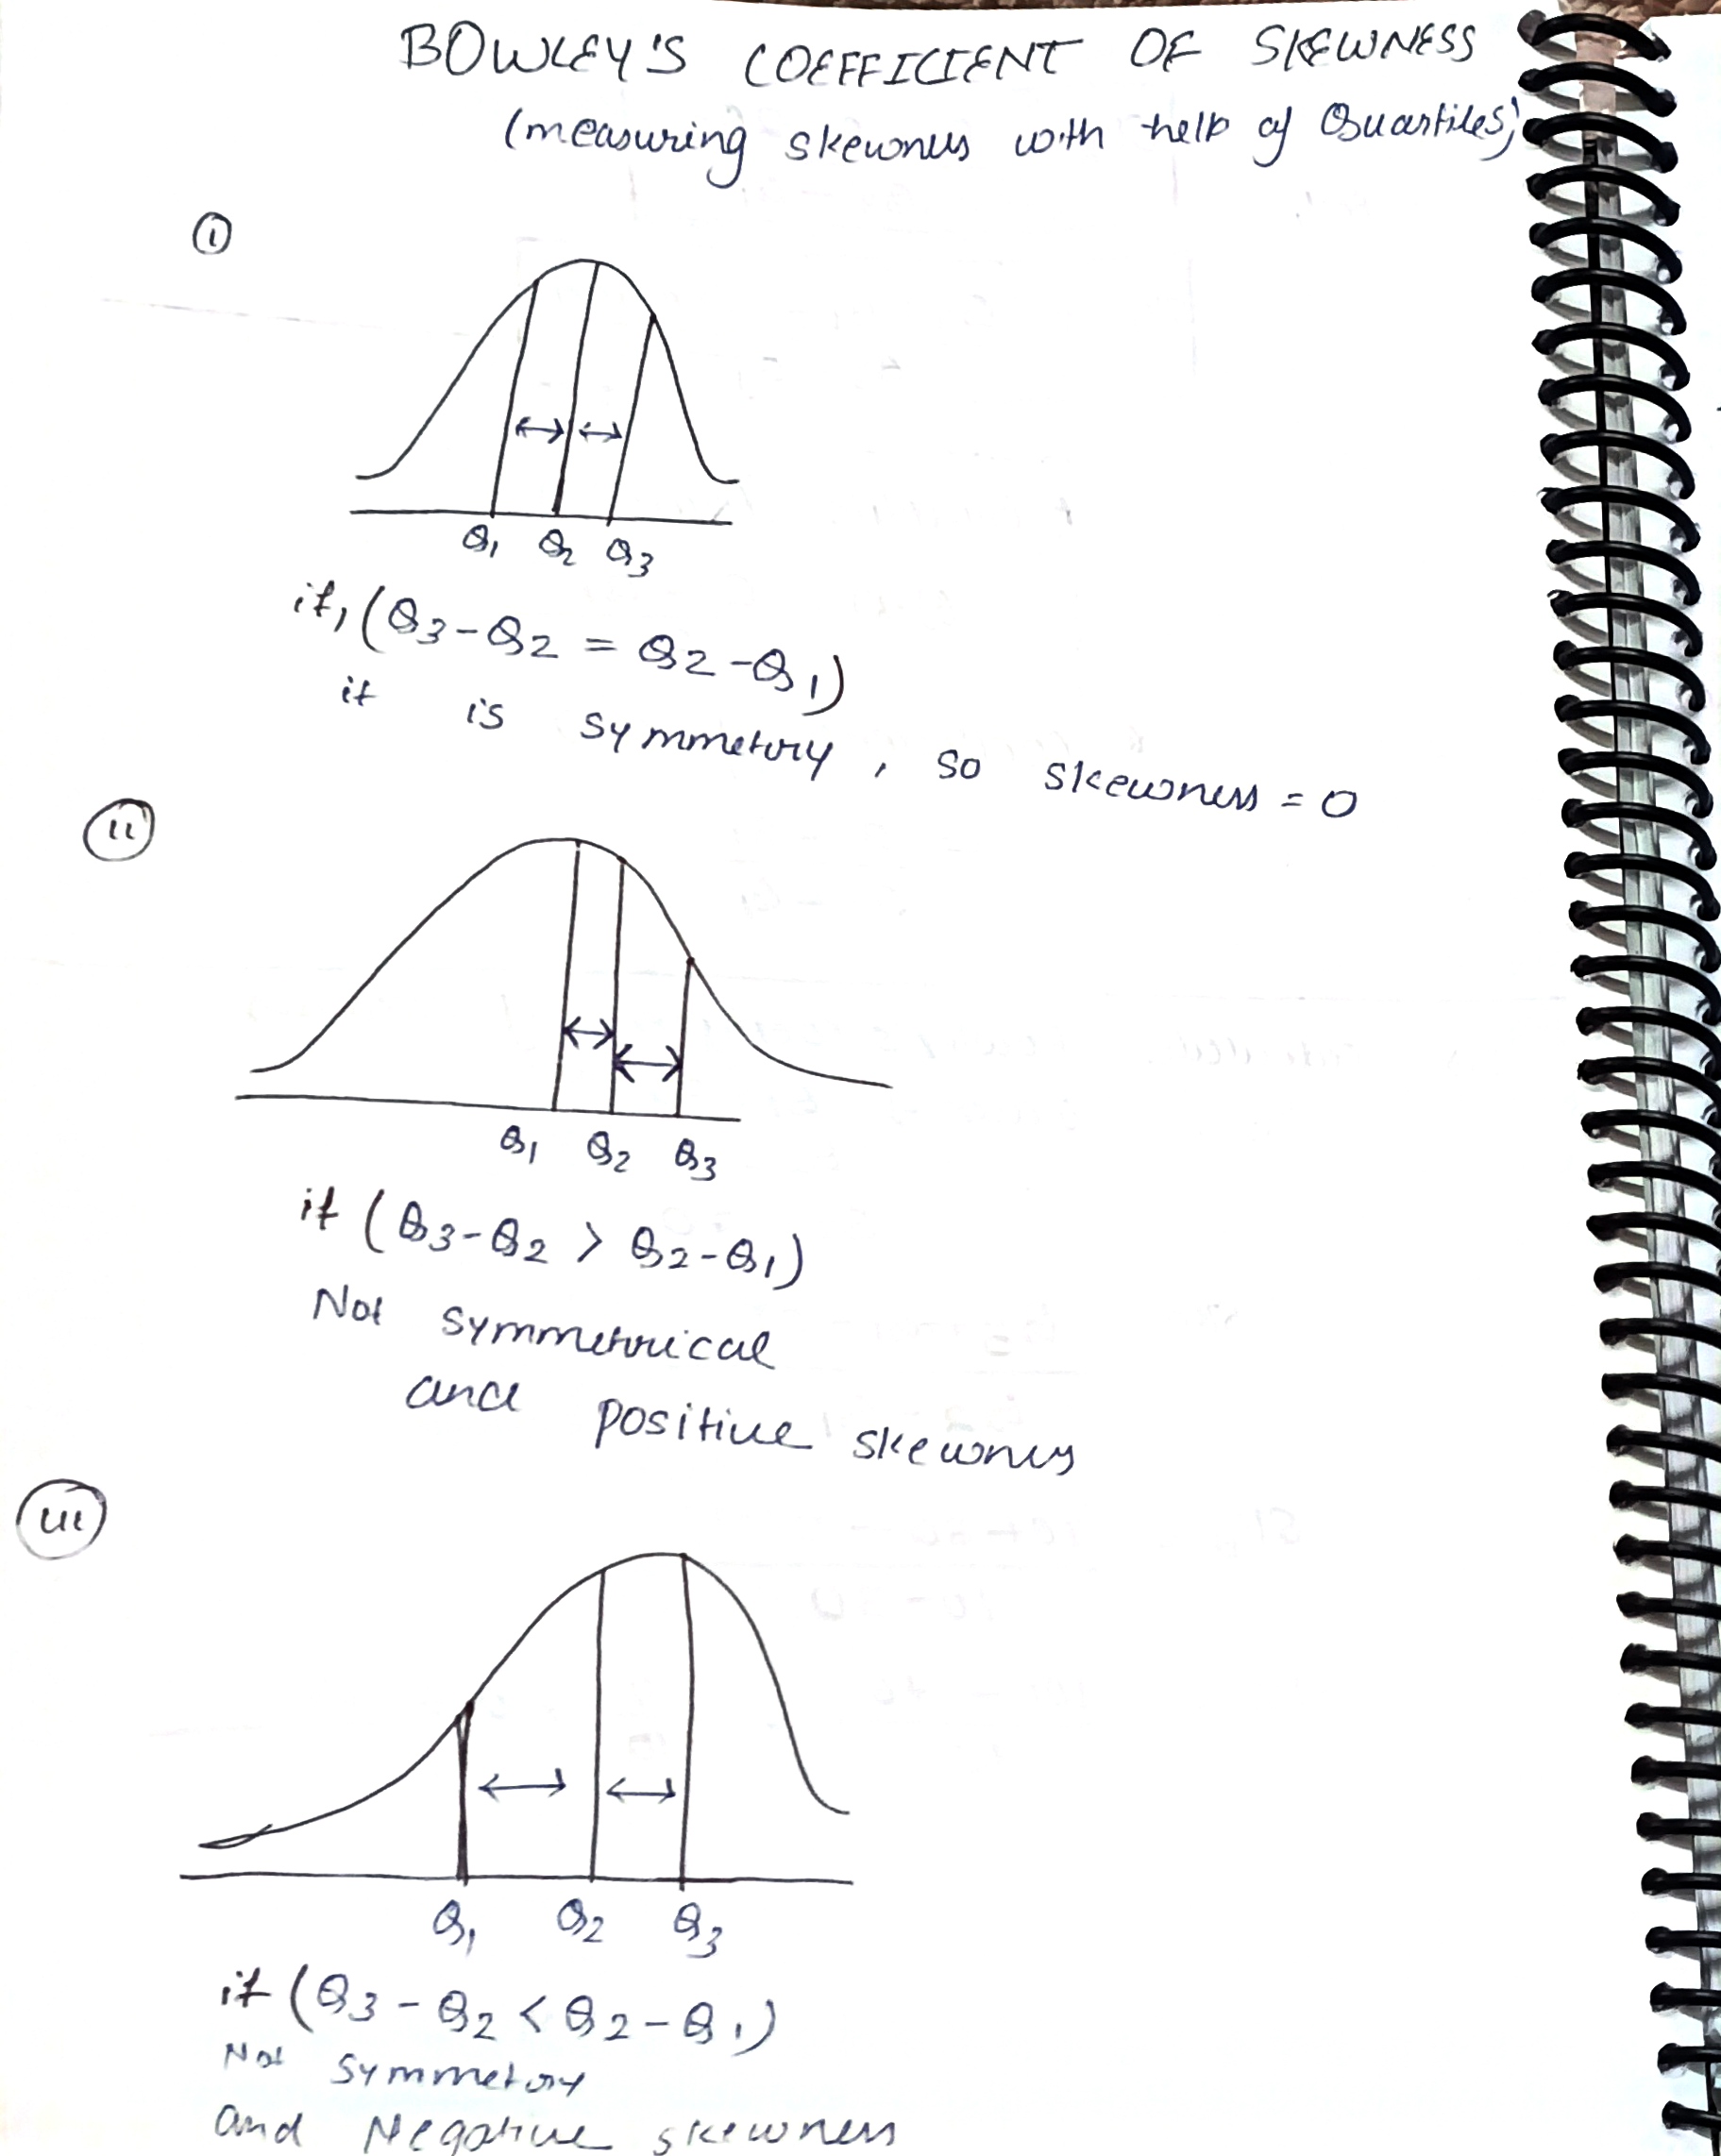 BOWLEY'S COEFFICIENT OF SKEWNESS
(measuring skewness with help of Quartiles)
(i)
Q1 Q2 Q3
if, (Q3-Q2 = Q2-Q1)
it is symmetry, so skewness = 0
(ii)
Q1 Q2 Q3
if (Q3-Q2 > Q2-Q1)
Not symmetrical
and positive skewness
(iii)
Q1 Q2 Q3
if (Q3-Q2 < Q2-Q1)
Not symmetry
and Negative skewness